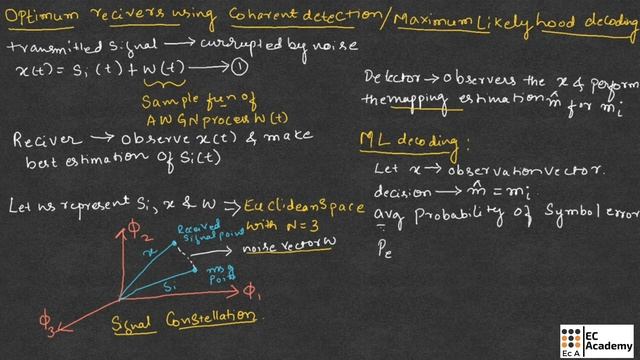 Optimum recivers using Coherent detection/Maximum Likelyhood decoding
transmitted signal → currupted by noise
x(t) = Si(t) + W(t) → ①
Sample fun of
AWGN process W(t)
Reciver → observe x(t) & make
best estimation of Si(t)
Let us represent Si, x & W ⇒ Euclidean space
with N = 3
ϕ2
Received
signal point
x
noise vector W
msg
point
Si
ϕ1
ϕ3
Signal Constellation
Detector → observers the x & perform
the mapping estimation m̂ for mi
ML decoding:
Let x → observation vector.
decision → m̂ = mi
avg Probability of Symbol error
Pe
EC
Academy
EC A